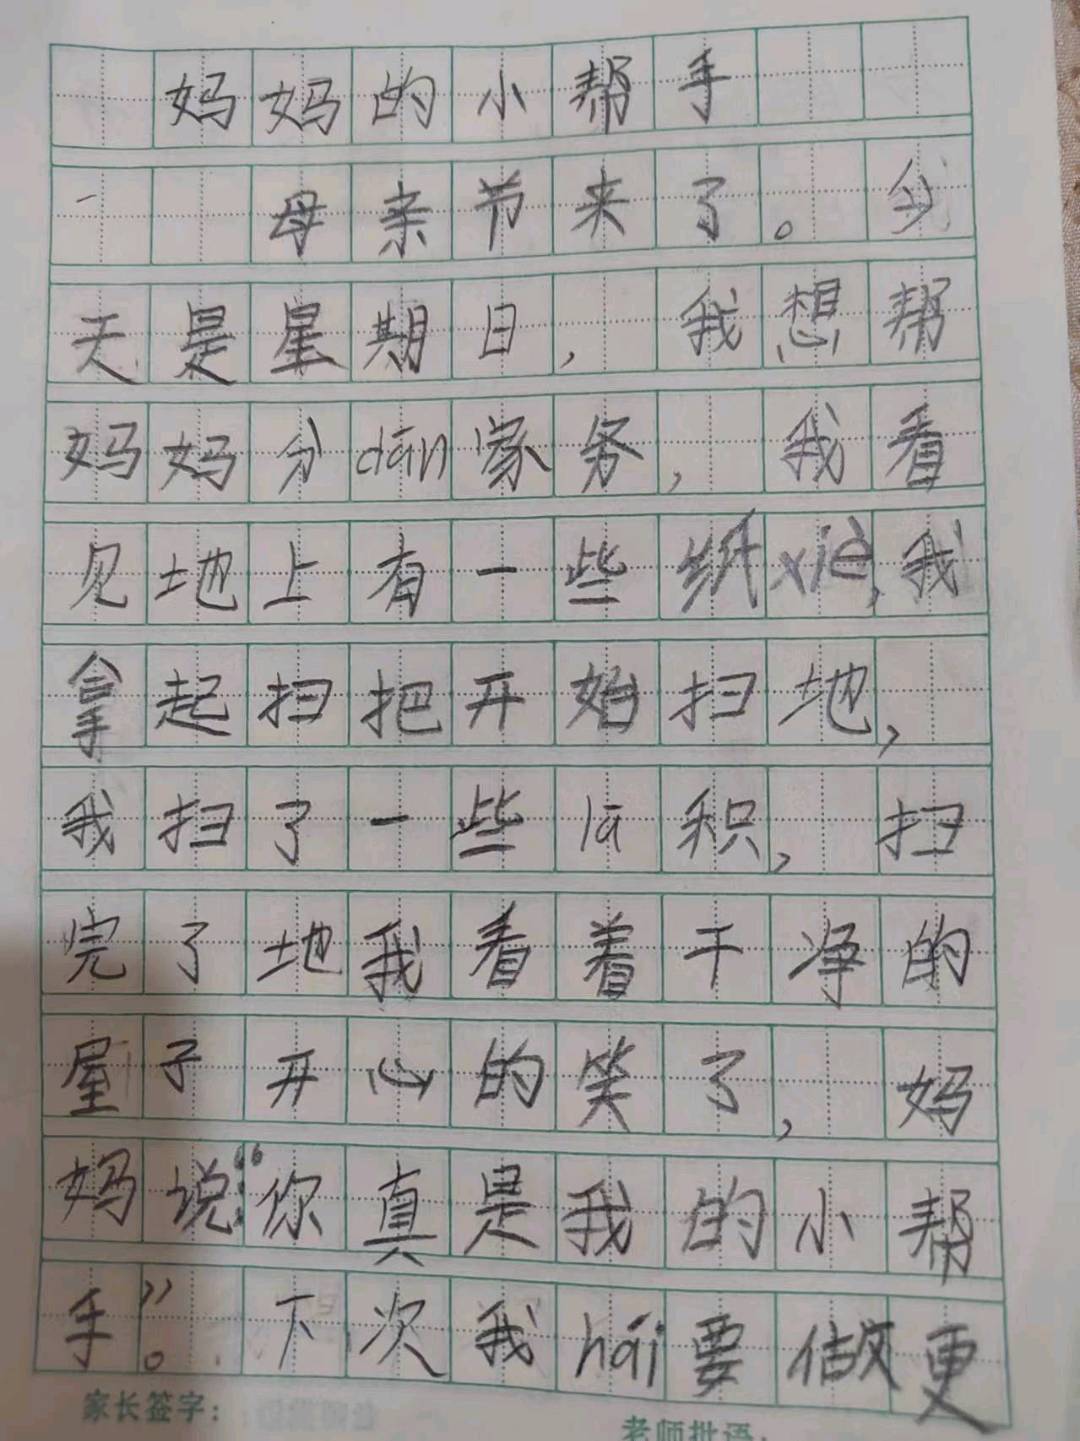 妈妈的小帮手
母亲节来了。今
天是星期日，我想帮
妈妈分dān家务，我看
见地上有一些纸xiè，我
拿起扫把开始扫地，
我扫了一些lā积，扫
完了地我看着干净的
屋子开心的笑了，妈
妈说：“你真是我的小帮
手”。下次我hái要做更
家长签字：
老师批语：